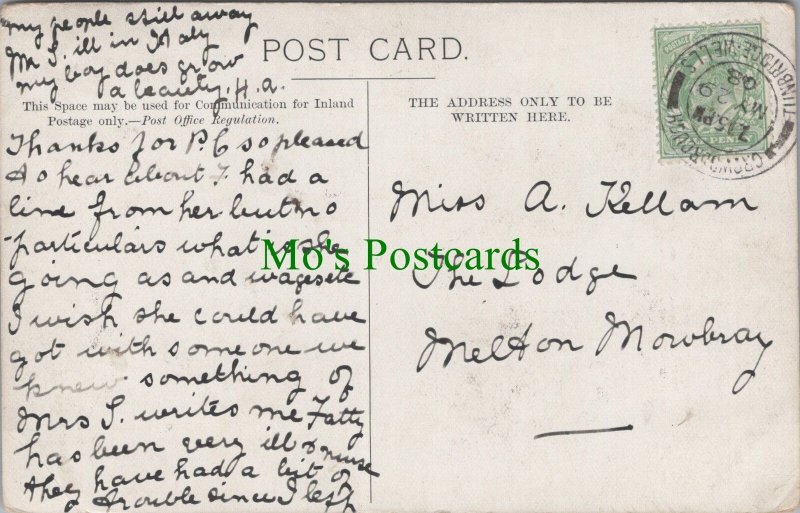 my people still away
Mr S. ill in Italy
my boy does grow
a beauty. H.a.
POST CARD.
This Space may be used for Communication for Inland
Postage only.—Post Office Regulation.
THE ADDRESS ONLY TO BE
WRITTEN HERE.
Thanks for P.C so pleased
to hear about F had a
line from her but no
particulars what is she
going as and wages etc
I wish she could have
got with someone we
knew something of
Mrs S. writes me Fatty
has been very ill & nurse
they have had a bit of
trouble since I left
Miss A. Kellam
The Lodge
Melton Mowbray
Mo's Postcards
CROWBOROUGH
TUNBRIDGE WELLS
7.15 PM
MY 29
08
POSTAGE